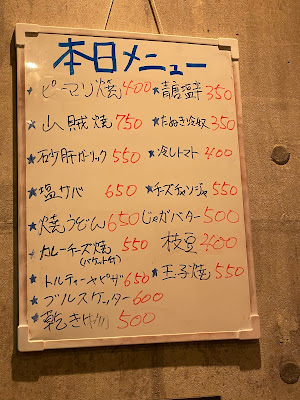 本日メニュー
ピーマン焼 400
★ 山賊焼 750
★ 砂肝ガーリック 550
★ 塩サバ 650
★ 焼うどん 650
★ カレーチーズ焼 550
(バケット付)
★ トルティーヤピザ 650
★ ブルスケッター 600
★ 乾き 500
★ 350
★ たぬき冷奴 350
★ 冷しトマト 400
★ チーズチャンジャ 550
じゃがバター 500
枝豆 400
★ 玉子焼 550